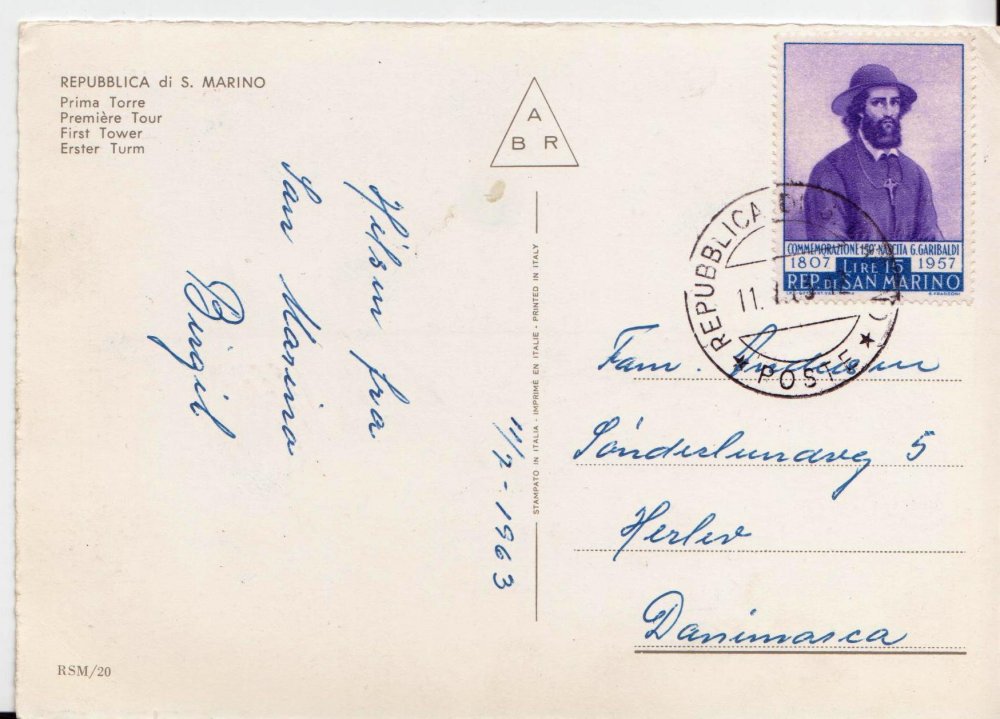 REPUBBLICA di S. MARINO
Prima Torre
Première Tour
First Tower
Erster Turm
A
B R
COMMEMORAZIONE 150° NASCITA G. GARIBALDI
1807 LIRE 15 1957
REP. DI SAN MARINO
REPUBBLICA DI
★ POSTE ★
Hilsen fra
San Marino
Birgit
11/7-1963
STAMPATO IN ITALIA - IMPRIMÉ EN ITALIE - PRINTED IN ITALY
Fam.
Sónderlundvej 5
Herlev
Danimarca
RSM/20